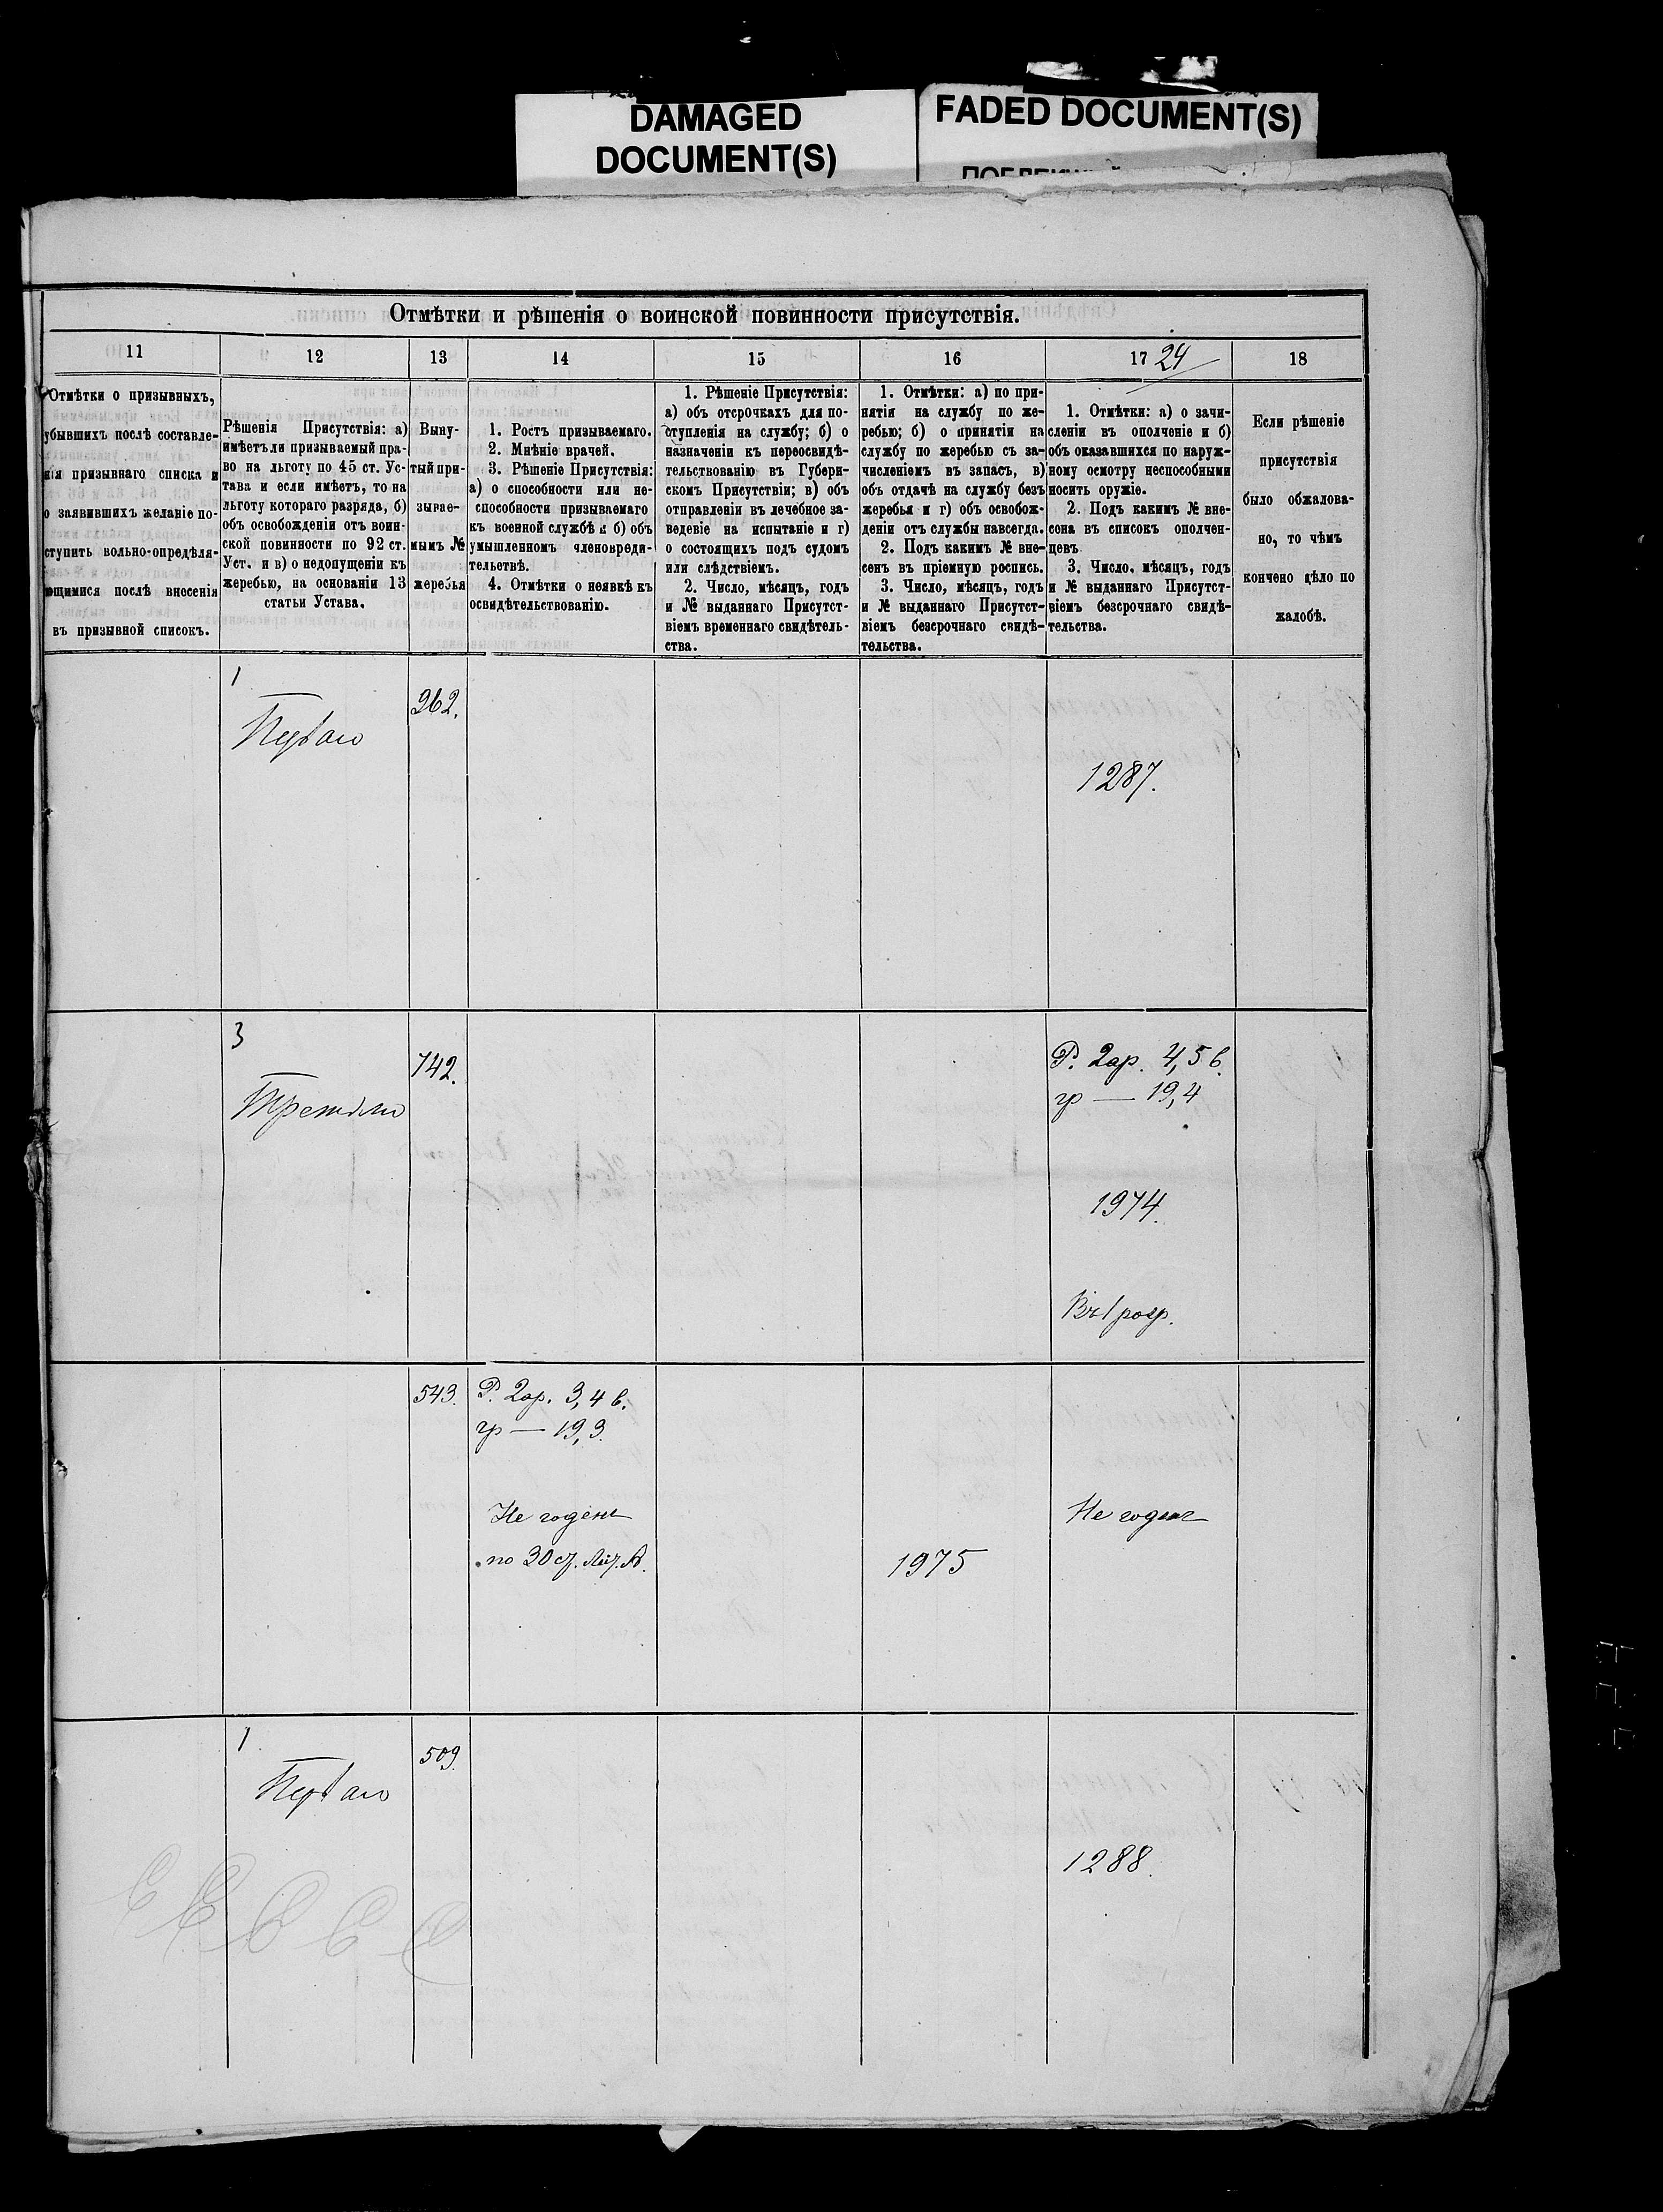 DAMAGED
DOCUMENT(S)
FADED DOCUMENT(S)
Отмѣтки и рѣшенія о воинской повинности присутствія.
11
12
13
14
15
16
17
24
18
Отмѣтки о призывныхъ,
убывшихъ послѣ составле-
нія призывнаго списка и
о заявившихъ желаніе по-
ступить вольно-опредѣля-
ющимися послѣ внесенія
въ призывной списокъ.
Рѣшенія Присутствія: а)
имѣетъ ли призываемый пра-
во на льготу по 45 ст. Ус-
тава и если имѣетъ, то на
льготу котораго разряда, б)
объ освобожденіи отъ воин-
ской повинности по 92 ст.
Уст. и в) о недопущеніи къ
жеребью, на основаніи 13
статьи Устава.
Выну-
тый при-
зывае-
мымъ №
жеребья
1. Ростъ призываемаго.
2. Мнѣніе врачей.
3. Рѣшеніе Присутствія:
а) о способности или не-
способности призываемаго
къ военной службѣ и б) объ
умышленномъ членовреди-
тельетвѣ.
4. Отмѣтки о неявкѣ къ
освидѣтельствованію.
1. Рѣшеніе Присутствія:
а) объ отсрочкахъ для по-
ступленія на службу; б) о
назначеніи къ переосвидѣ-
тельствованію въ Губерн-
скомъ Присутствіи; в) объ
отправленіи въ лечебное за-
веденіе на испытаніе и г)
о состоящихъ подъ судомъ
или слѣдствіемъ.
2. Число, мѣсяцъ, годъ
и № выданнаго Присутст-
віемъ временнаго свидѣтель-
ства.
1. Отмѣтки: а) по при-
нятія на службу по же-
ребью; б) о принятіи на
службу по жеребью съ за-
численіемъ въ запасъ, в)
объ отдачѣ на службу безъ
жеребья и г) объ освобож-
деніи отъ службы навсегда.
2. Подъ какимъ № вне-
сенъ въ пріемную роспись.
3. Число, мѣсяцъ, годъ
и № выданнаго Присутст-
віемъ безсрочнаго свидѣ-
тельства.
1. Отмѣтки: а) о зачи-
сленіи въ ополченіе и б)
объ оказавшихся по наруж-
ному осмотру неспособными
носить оружіе.
2. Подъ какимъ № вне-
сена въ списокъ ополчен-
цевъ.
3. Число, мѣсяцъ, годъ
и № выданнаго Присутст-
віемъ безсрочнаго свидѣ-
тельства.
Если рѣшеніе
присутствія
было обжалова-
но, то чѣмъ
кончено дѣло по
жалобѣ.
1
Перваго
962.
1287.
3
Третьяго
742.
Р. 2ар. 4,5 в.
гр — 19,4
1974.
Въ 1 разр.
543.
Р. 2ар. 3,4 в.
гр — 19,3.
Не годенъ
по 30 ст. Лит. А.
1975
Не годенъ
1
Перваго
509.
1288.